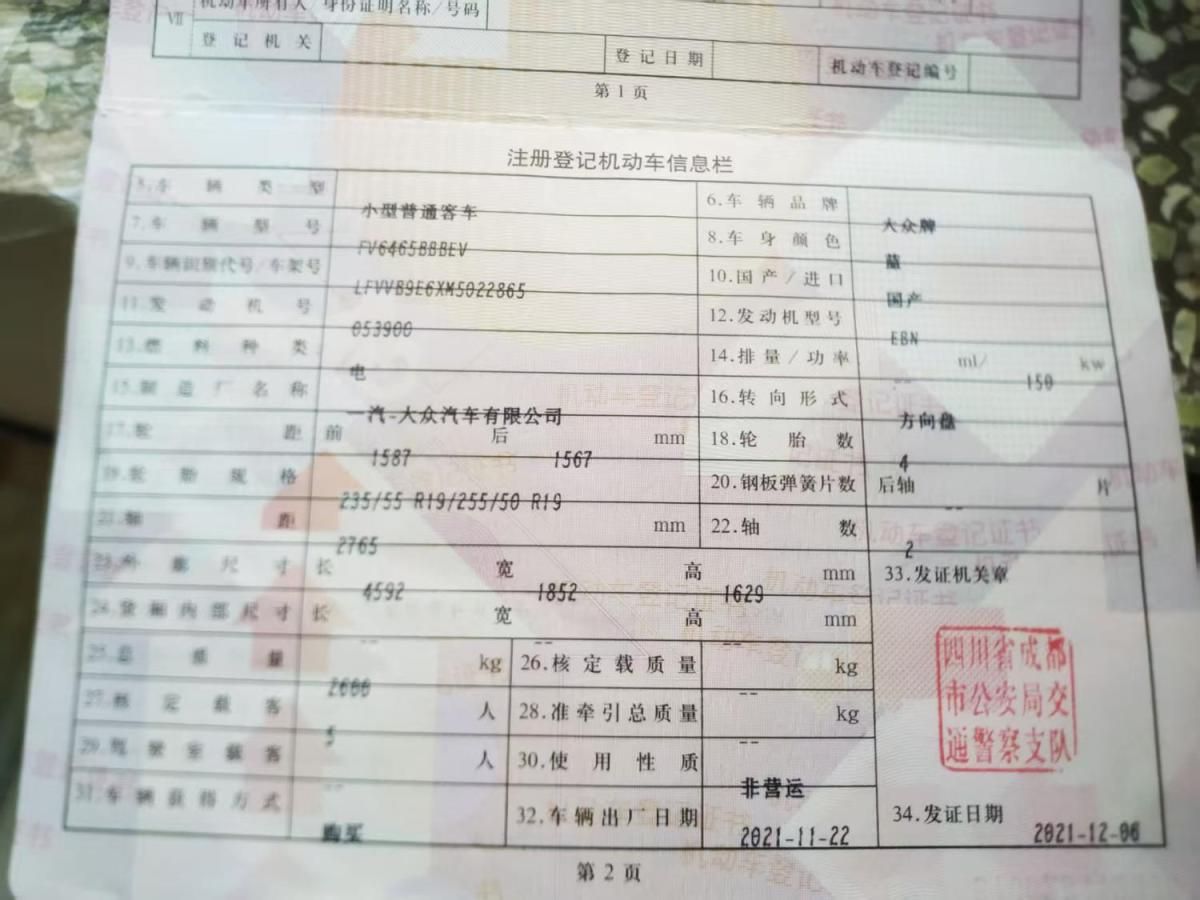 VII 机动车所有人/身份证明名称/号码
登记机关 登记日期 机动车登记编号
第1页
注册登记机动车信息栏
5.车辆类型 小型普通客车 6.车辆品牌 大众牌
7.车辆型号 FV6465BBBEV 8.车身颜色 蓝
9.车辆识别代号/车架号 LFVVB9E6XM5022865 10.国产/进口 国产
11.发动机号 053900 12.发动机型号 EBN
13.燃料种类 电 14.排量/功率 -- ml/ 150 kw
15.制造厂名称 一汽-大众汽车有限公司 16.转向形式 方向盘
17.轮距 前 1587 后 1567 mm 18.轮胎数 4
19.轮胎规格 235/55 R19/255/50 R19 20.钢板弹簧片数 后轴 -- 片
21.轴距 2765 mm 22.轴数 2
23.外廓尺寸 长 4592 宽 1852 高 1629 mm 33.发证机关章
24.货厢内部尺寸 长 -- 宽 -- 高 -- mm
25.总质量 kg 26.核定载质量 -- kg
27.核定载客 5 人 28.准牵引总质量 -- kg
29.驾驶室载客 -- 人 30.使用性质 非营运
31.车辆获得方式 购买 32.车辆出厂日期 2021-11-22 34.发证日期 2021-12-06
四川省成都
市公安局交
通警察支队
第2页